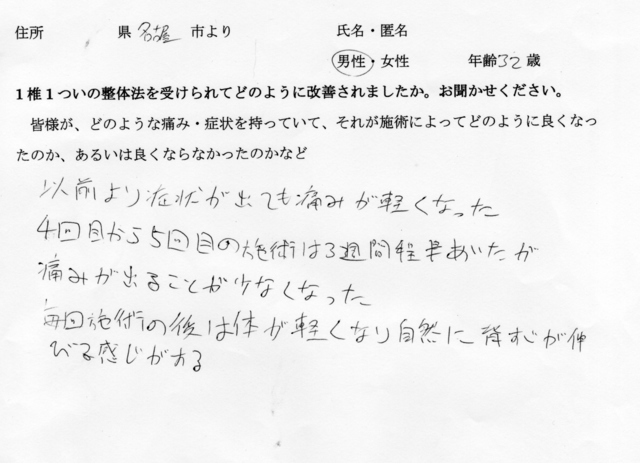 住所 県 名古屋 市より 氏名・匿名
男性・女性 年齢32歳
1椎1つい の整体法を受けられてどのように改善されましたか。お聞かせください。
皆様が、どのような痛み・症状を持っていて、それが施術によってどのように良くなっ
たのか、あるいは良くならなかったのかなど
以前より症状が出ても痛みが軽くなった
4回目から5回目の施術は3週間程度あいたが
痛みが出ることが少なくなった
毎回施術の後は体が軽くなり自然に背すじが伸
びる感じがする